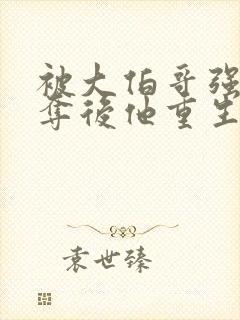 被大伯哥强
夺後他重生
袁世臻